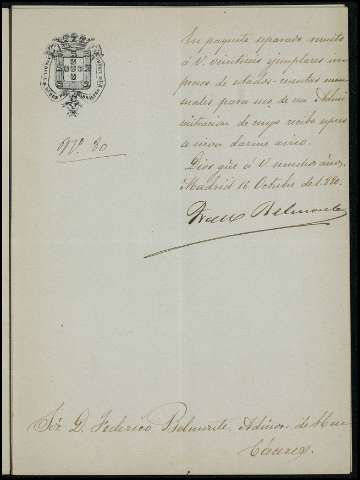 Nº. 30
En paquete separado remito
á V. veinticinco ejemplares im-
presos de estados-cuentas men-
suales para uso de esa Admi-
nistracion de cuyo recibo espero
se sirva darme aviso.
Dios gúe á V muchos años.
Madrid 16 Octubre de 1880.
Belmonte
Sor. D. Federico Belmonte, Admor. de
Cáceres.